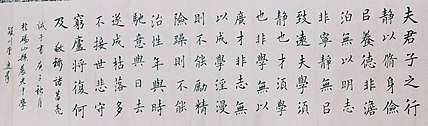 夫君子之行
静以脩身儉
㠯養德非澹
泊無以明志
非寧靜無㠯
致遠夫學須
静也才須學
也非學無以
廣才非志無
以成學淫漫
則不能勵精
險躁則不能
治性年與時
馳意與日去
遂成枯落多
不接世悲守
窮廬將復何
及 敬錄諸葛亮
誡子書 庚子秋月